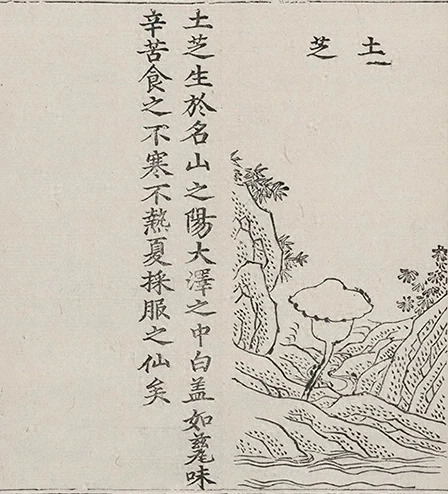 土芝
土芝生於名山之陽大澤之中白盖如味
辛苦食之不寒不熱夏採服之仙矣